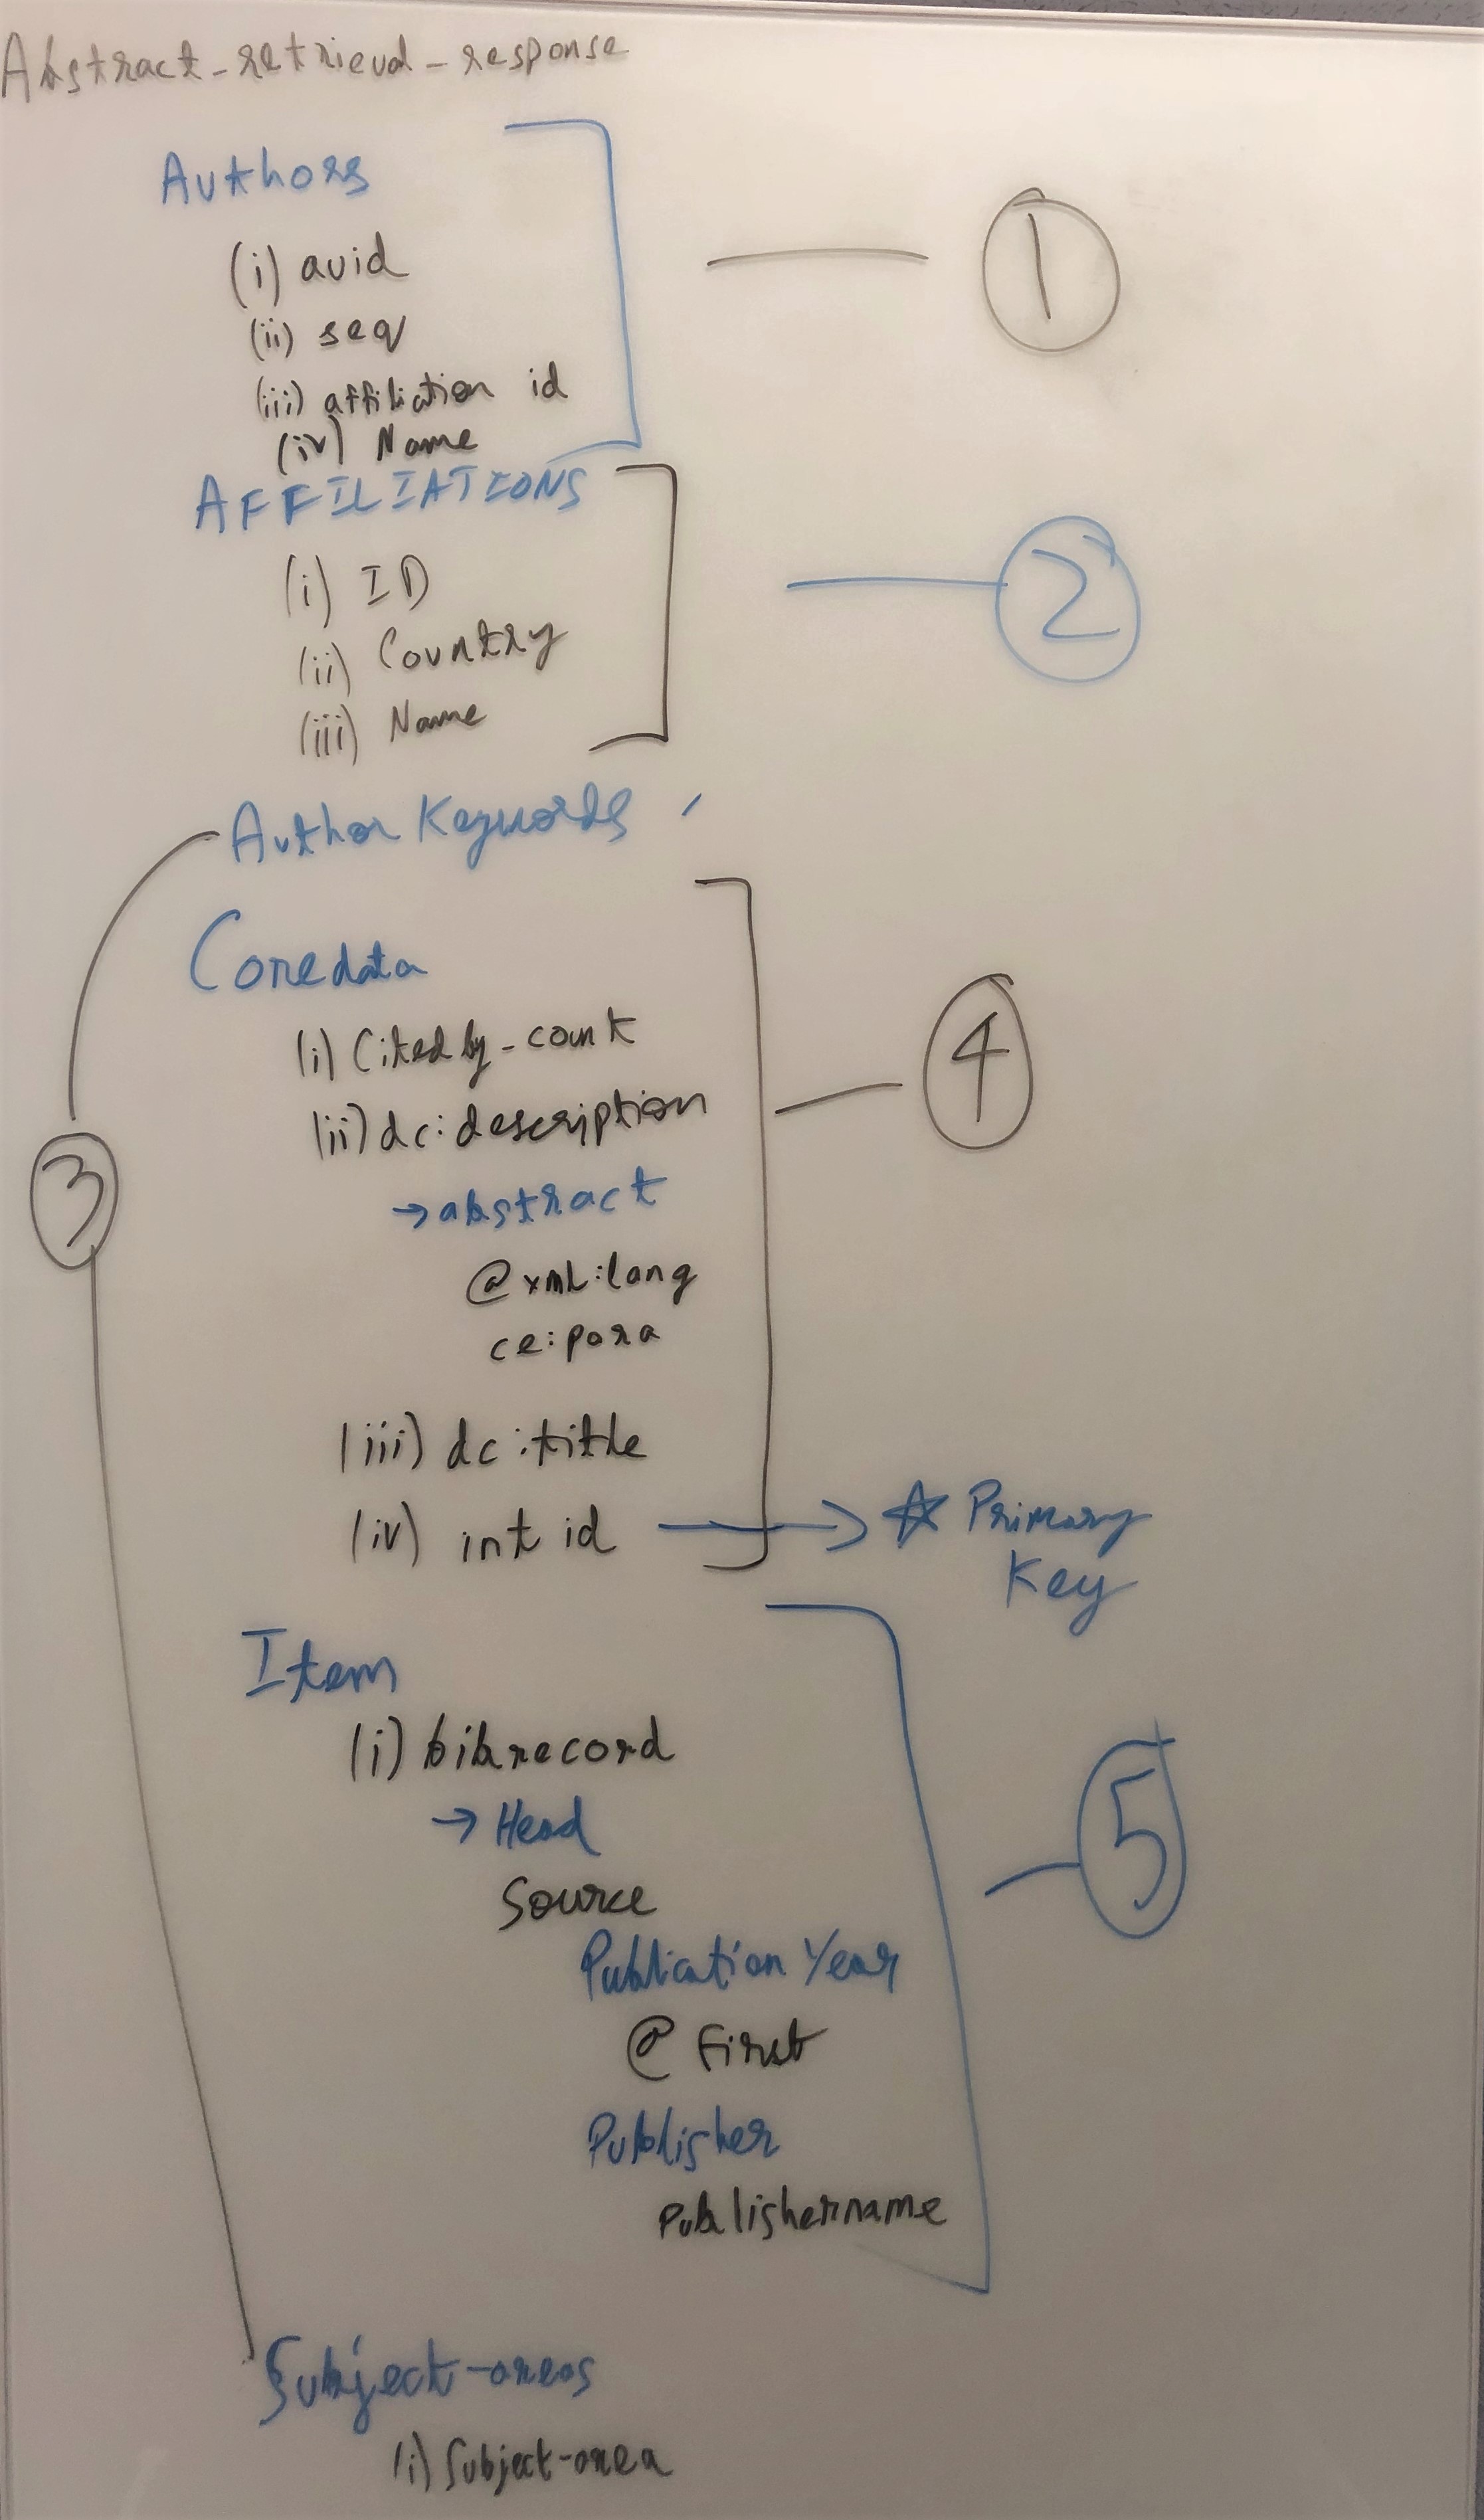 Abstract-retrieval-response
Authors
(i) auid
(ii) seq
(iii) affiliation id
(iv) Name
AFFILIATIONS
(i) ID
(ii) Country
(iii) Name
1
2
Author Keywords
Coredata
(i) Citedby-count
(ii) dc:description
→ abstract
@xml:lang
ce:para
(iii) dc:title
(iv) int id → ☆ Primary
Key
4
3
Item
(i) bibrecord
→ Head
Source
Publication Year
@ First
Publisher
Publishername
5
Subject-areas
(i) Subject-area